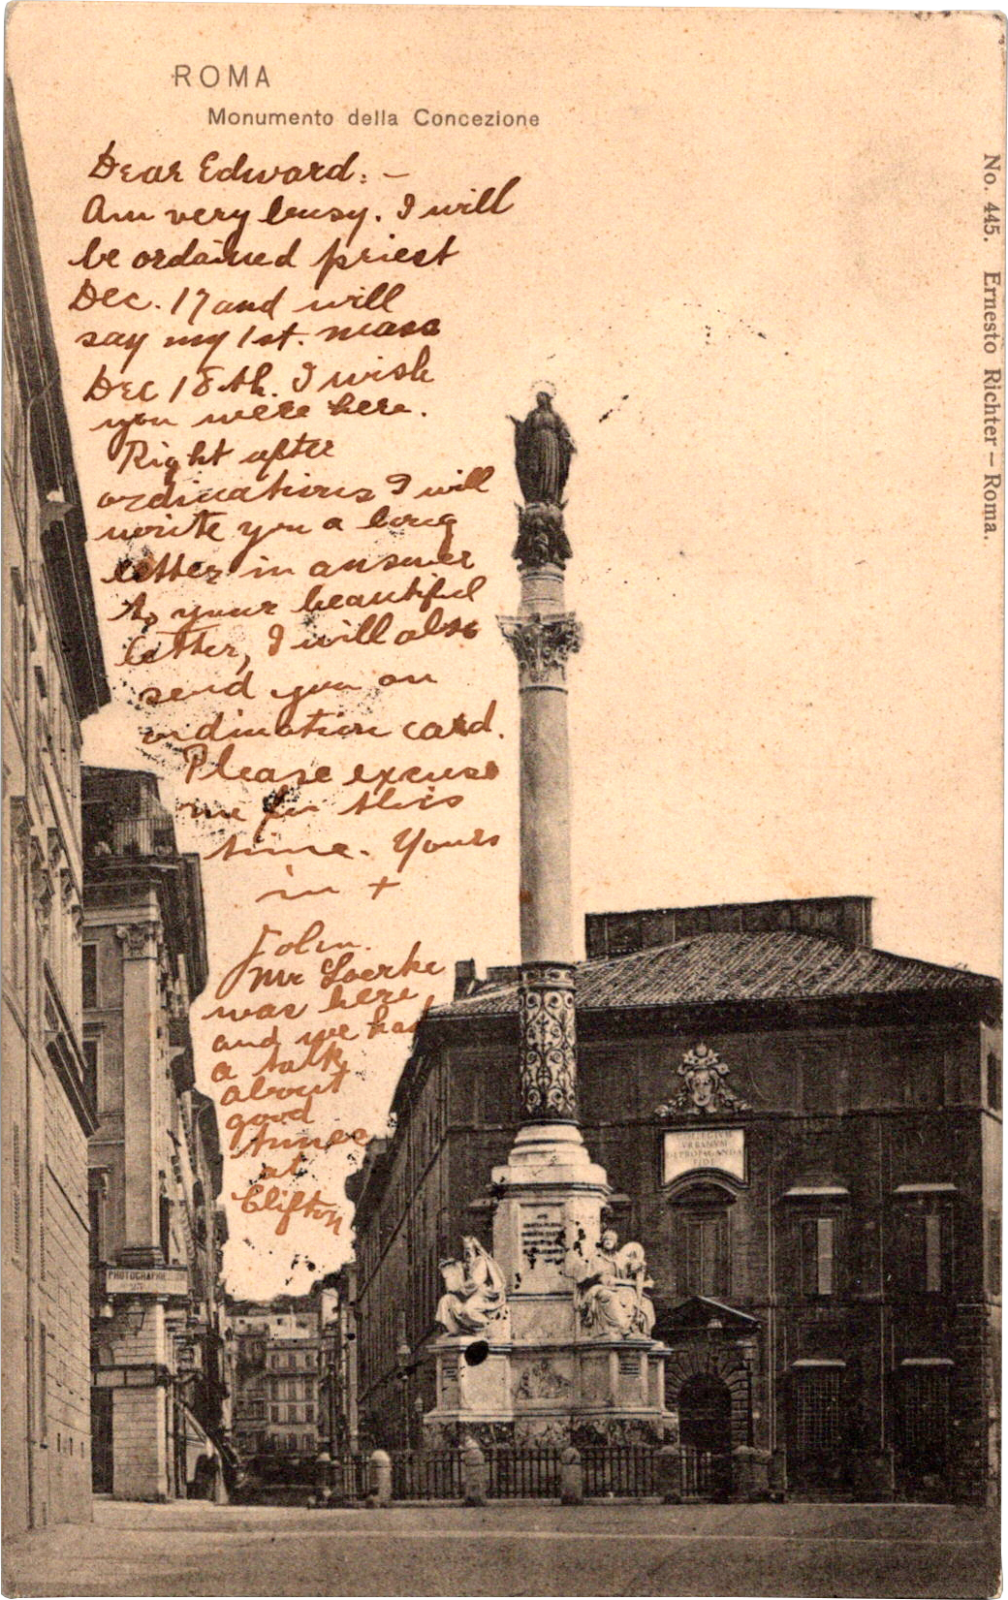 ROMA
Monumento della Concezione
Dear Edward: –
Am very busy. I will
be ordained priest
Dec. 17 and will
say my 1st. mass
Dec 18th. I wish
you were here.
Right after
ordinations I will
write you a long
letter in answer
to your beautiful
letter, I will also
send you an
ordination card.
Please excuse
me for this
time. Yours
in +
John.
Mr Loerke
was here
and we had
a talk
about
good
times
at
Clifton
No. 445. Ernesto Richter – Roma.
PHOTOGRAPHIE